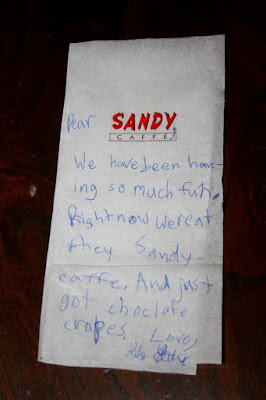 Dear SANDY
CAFFÉ
We have been have-
ing so much fun.
Right now we re at
they Sandy-
caffe. And just
got choclate
crapes. Love,